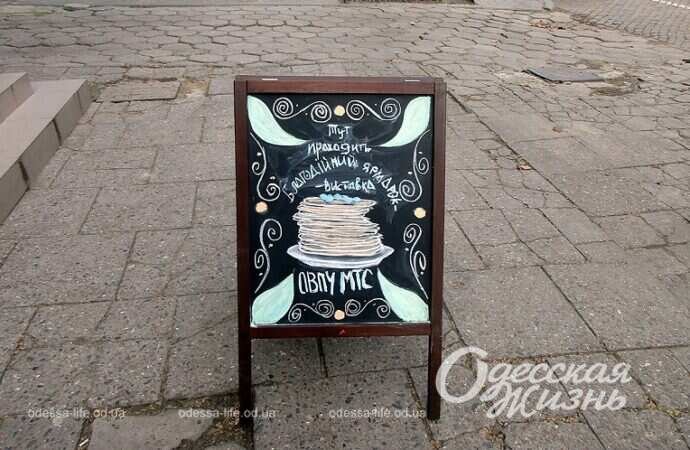 Тут
проходить
Благодійний ярмарок-
-виставка
ОВПУ МТС
Одесская
Жизнь
odessa-life.od.ua odessa-life.od.ua odessa-life.od.ua